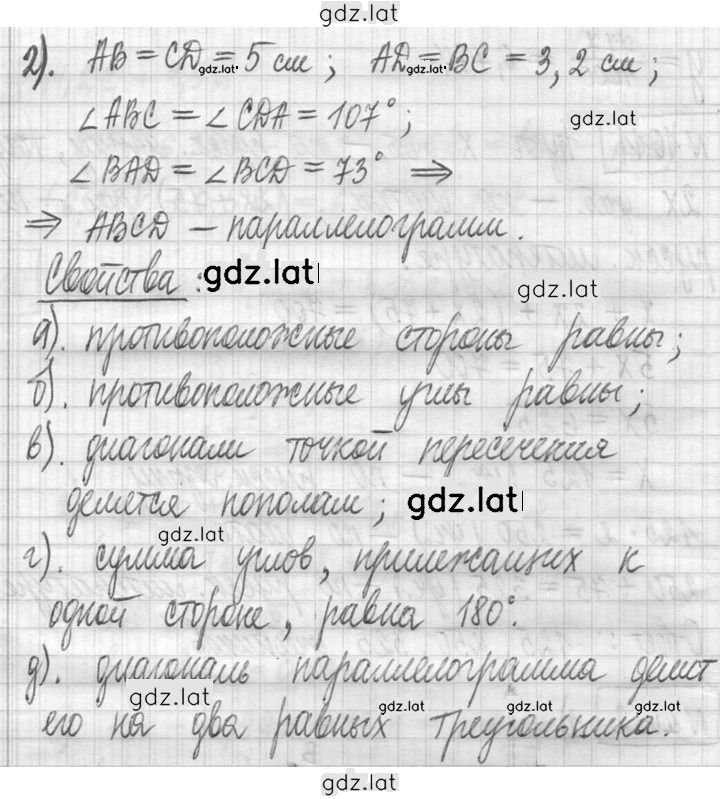 gdz.lat
2). AB = CD = 5 см ; AD = BC = 3,2 см ;
gdz.lat gdz.lat
∠ABC = ∠CDA = 107° ;
gdz.lat
∠BAD = ∠BCD = 73° ⇒
⇒ ABCD – параллелограмм.
Свойства : gdz.lat
gdz.lat
а). противоположные стороны равны ;
б). противоположные углы равны ;
в). диагонали точкой пересечения
делятся пополам ; gdz.lat
gdz.lat
г). сумма углов, прилежащих к
одной стороне, равна 180°.
д). диагональ параллелограмма делит
gdz.lat
его на два равных треугольника.
gdz.lat gdz.lat
gdz.lat